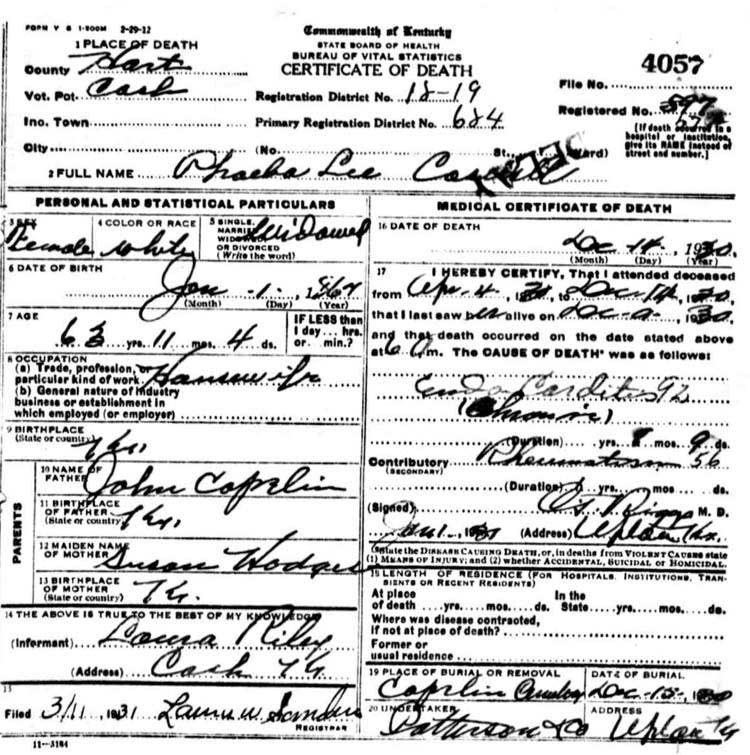 FORM V S 1-500M 2-29-12
Commonwealth of Kentucky
STATE BOARD OF HEALTH
BUREAU OF VITAL STATISTICS
CERTIFICATE OF DEATH
4057
1 PLACE OF DEATH
County Hart
Vot. Pct. Cash
Inc. Town
City
Registration District No. 18-19
Primary Registration District No. 684
(No. St. Ward)
File No.
Registered No. 597
[If death occurred in a hospital or institution, give its NAME instead of street and number.]
2 FULL NAME Phoeba Lee
PERSONAL AND STATISTICAL PARTICULARS
3 SEX
Female
4 COLOR OR RACE
White
5 SINGLE, MARRIED WIDOWED OR DIVORCED (Write the word)
Widowed
6 DATE OF BIRTH
Jan -1- 1867
(Month) (Day) (Year)
7 AGE
63 yrs. 11 mos. 4 ds.
IF LESS than 1 day ... hrs. or ... min.?
8 OCCUPATION
(a) Trade, profession, or particular kind of work Housewife
(b) General nature of industry business or establishment in which employed (or employer)
9 BIRTHPLACE
(State or country) Ky.
PARENTS
10 NAME OF FATHER John Copelin
11 BIRTHPLACE OF FATHER (State or country) Ky.
12 MAIDEN NAME OF MOTHER Susan Hodges
13 BIRTHPLACE OF MOTHER (State or country) Ky.
14 THE ABOVE IS TRUE TO THE BEST OF MY KNOWLEDGE
(Informant) Laura Riley
(Address) Cash Ky
15
Filed 3/11, 1931 REGISTRAR
11-3184
MEDICAL CERTIFICATE OF DEATH
16 DATE OF DEATH
Dec 14, 1930.
(Month) (Day) (Year)
17 I HEREBY CERTIFY, That I attended deceased
from Apr. 4, to Dec 14, 1930,
that I last saw her alive on Dec 1930,
and that death occurred on the date stated above
at 6 m. The CAUSE OF DEATH* was as follows:
Endo Carditis 92
(Chronic)
(Duration) yrs. 8 mos. 9 ds.
Contributory Rheumatism 56
(SECONDARY)
(Duration) yrs. mos. ds.
(Signed) Riggs M. D.
Jan 1, 1931 (Address) Upton Ky.
*State the DISEASE CAUSING DEATH, or, in deaths from VIOLENT CAUSES state (1) MEANS OF INJURY; and (2) whether ACCIDENTAL, SUICIDAL or HOMICIDAL.
18 LENGTH OF RESIDENCE (FOR HOSPITALS, INSTITUTIONS, TRANSIENTS OR RECENT RESIDENTS)
At place of death yrs. mos. ds. In the State yrs. mos. ds.
Where was disease contracted, if not at place of death?
Former or usual residence
19 PLACE OF BURIAL OR REMOVAL
Copelin Cemetery
DATE OF BURIAL
Dec-15-1930
20 UNDERTAKER
Patterson & Co
ADDRESS
Upton Ky